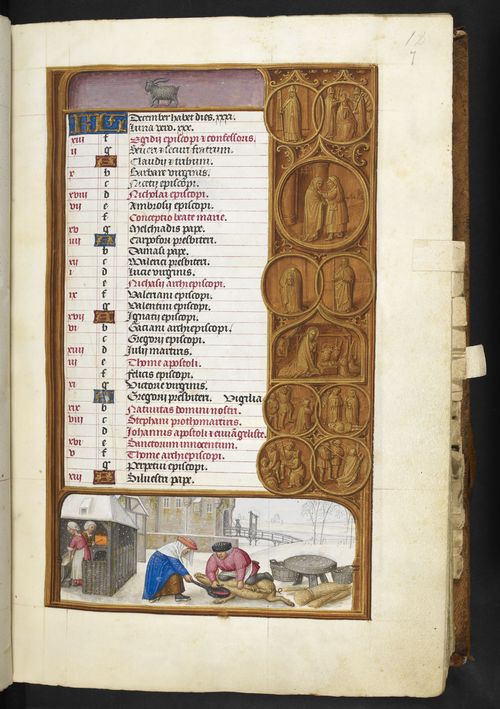 12
7
KL December habet dies. xxxi.
Luna vero. xxx.
xiii f Egidii episcopi & confessoris.
ii g fratrum.
A Claudii & tribum.
x b Barbare virginis.
c Nicetii episcopi.
xviii d Nicholai episcopi.
vii e Ambrosii episcopi.
f Conceptio beate marie.
xv g Melchiadis pape.
iiii A Carpofori presbiteri.
b Damasi pape.
xii c Valerici presbiteri.
i d Lucie virginis.
e Nichasii archiepiscopi.
ix f Valeriani episcopi.
g Valentini episcopi.
xvii A Ignatii episcopi.
vi b Gaciani archiepiscopi.
c Gregorii episcopi.
xiiii d Julii martiris.
iii e Thome apostoli.
f Felicis episcopi.
xi g Victorie virginis.
A Gregorii presbiteri. Vigilia
xix b Natiuitas domini nostri.
viii c Stephani prothomartiris.
d Johannis apostoli & euuãgeliste.
xvi e Sanctorum innocentum.
v f Thome archiepiscopi.
g Perpetui episcopi.
xiii A Siluestri pape.